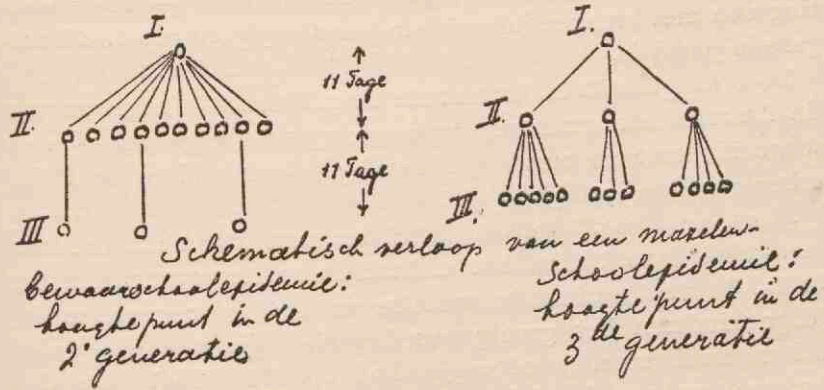 I.
II.
III
11 Tage
11 Tage
I.
II.
III.
Schematisch verloop van een mazelen-
bewaarschoolepidemie:
hoogtepunt in de
2e generatie
Schoolepidemie:
hoogtepunt in de
3de generatie